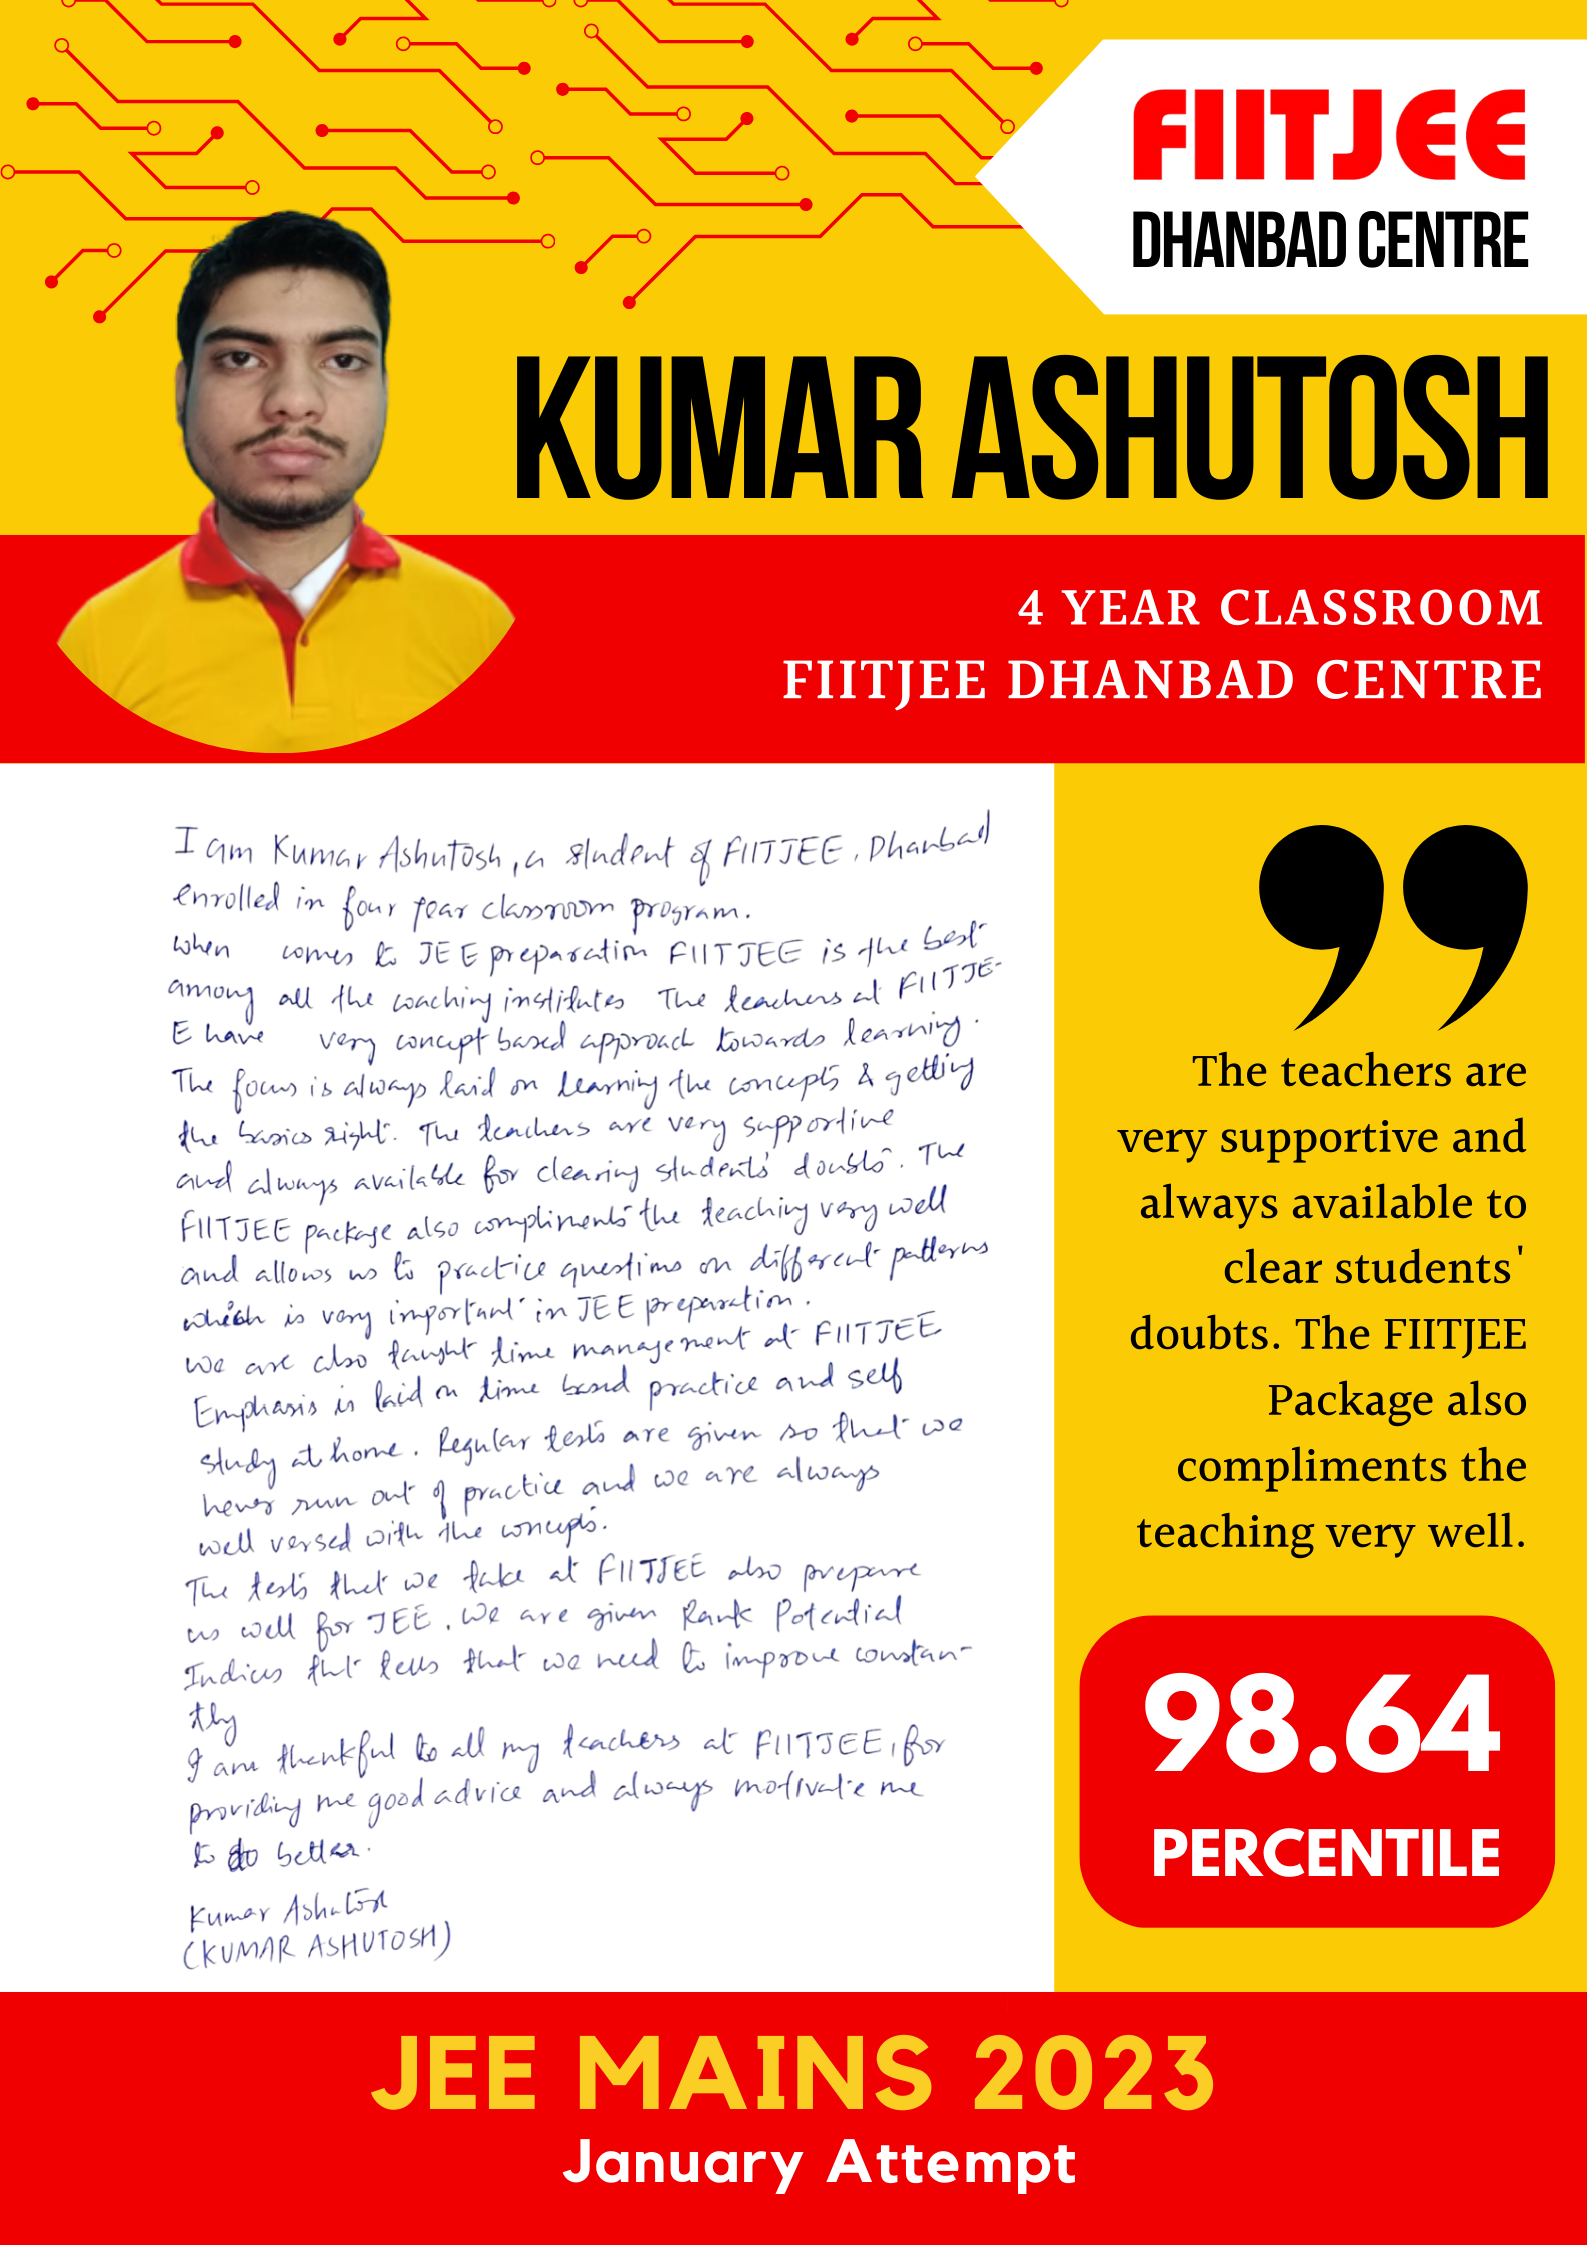 FIITJEE
DHANBAD CENTRE
KUMAR ASHUTOSH
4 YEAR CLASSROOM
FIITJEE DHANBAD CENTRE
I am Kumar Ashutosh, a student of FIITJEE, Dhanbad
enrolled in four year classroom program.
When comes to JEE preparation FIITJEE is the best
among all the coaching institutes The teachers at FIITJE-
E have very concept based approach towards learning.
The focus is always laid on learning the concepts & getting
the basics right. The teachers are very supportive
and always available for clearing students' doubts. The
FIITJEE package also compliments the teaching very well
and allows us to practice questions on different patterns
which is very important in JEE preparation.
We are also taught time management at FIITJEE
Emphasis is laid on time based practice and self
study at home. Regular tests are given so that we
never run out of practice and we are always
well versed with the concepts.
The tests that we take at FIITJEE also prepare
us well for JEE. We are given Rank Potential
Indices that tells that we need to improve constan-
tly
I am thankful to all my teachers at FIITJEE, for
providing me good advice and always motivate me
to do better.
Kumar Ashutosh
(KUMAR ASHUTOSH)
The teachers are
very supportive and
always available to
clear students'
doubts. The FIITJEE
Package also
compliments the
teaching very well.
98.64
PERCENTILE
JEE MAINS 2023
January Attempt